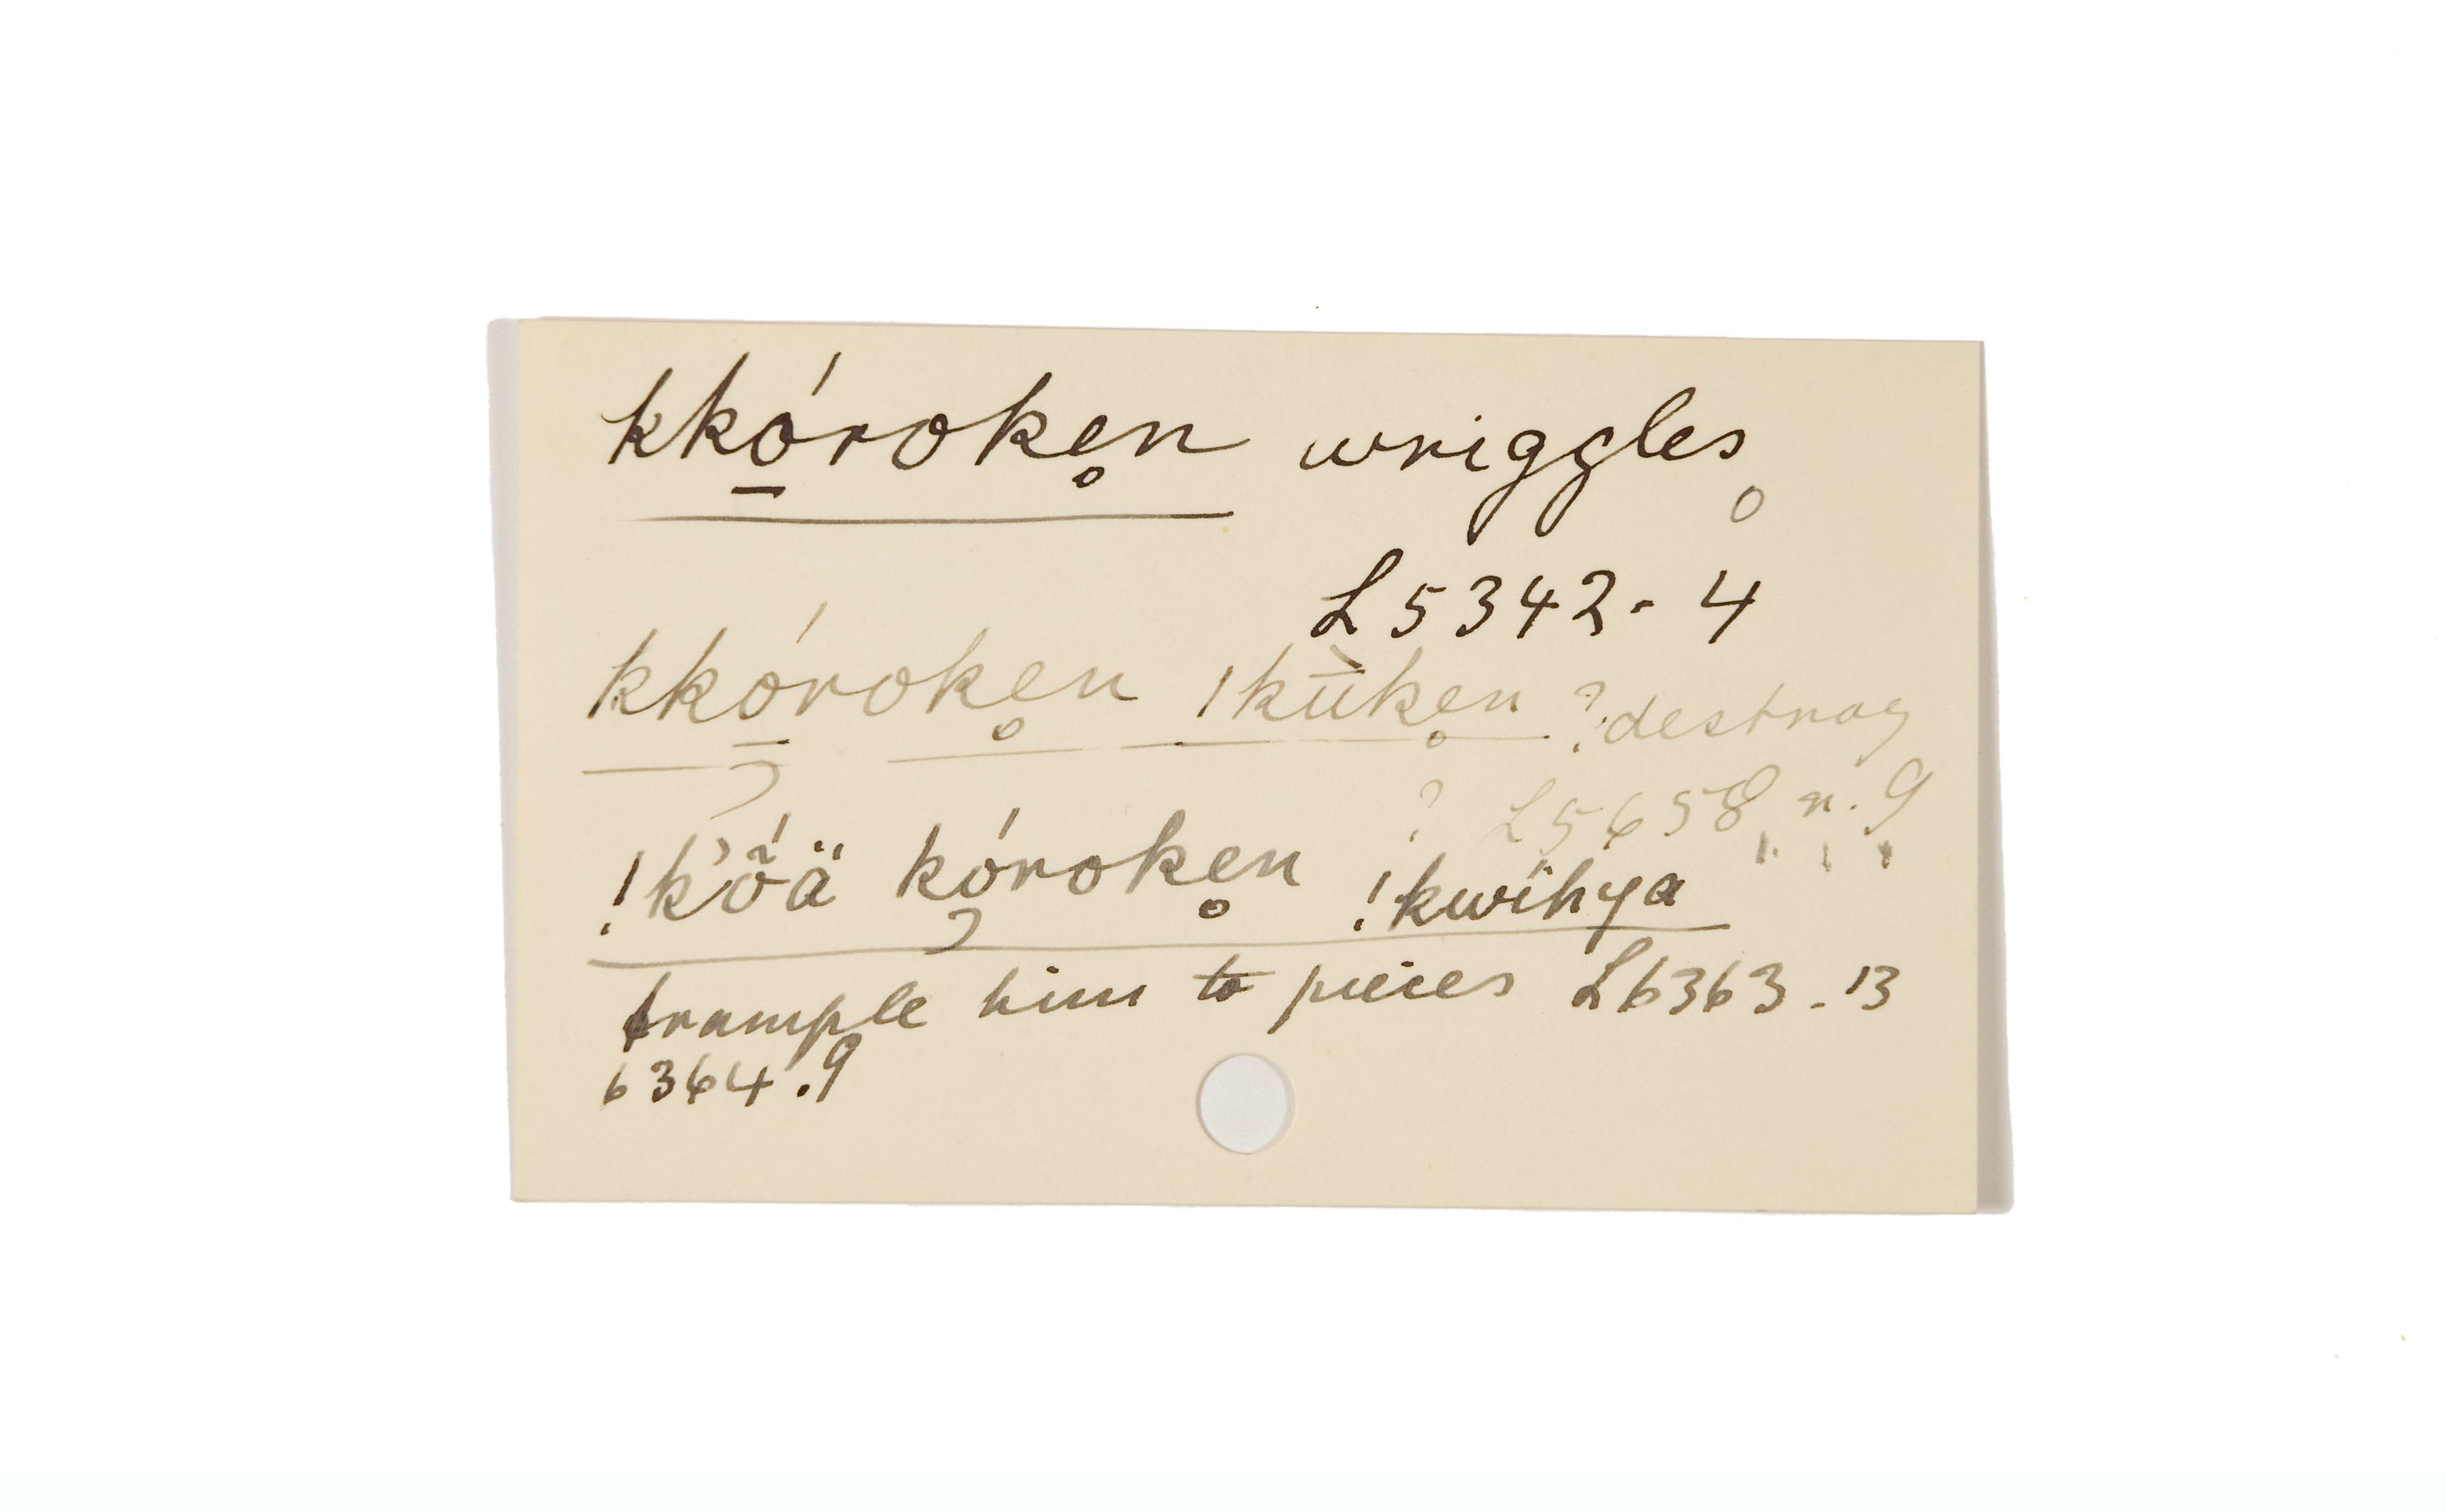 kkó̱roke̥n wriggles
L 5342 - 4
kkó̱roke̥n ǀkū̀ke̥n ? destroy
? L5658 r. 9
!k'õ̒ä kóroke̥n !kwíhya
trample him to pieces L6363 - 13
6364.9